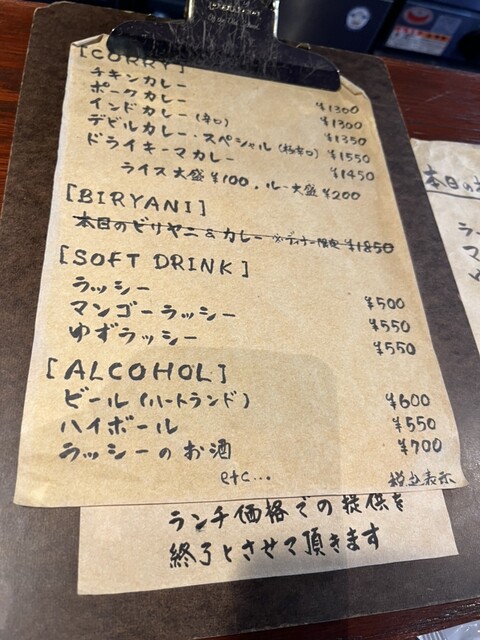 [CORRY]
チキンカレー ¥1300
ポークカレー ¥1300
インドカレー (辛口) ¥1350
デビルカレー・スペシャル (極辛口) ¥1550
ドライキーマカレー ¥1450
ライス大盛 ¥100, ルー大盛 ¥200
[BIRYANI]
本日のビリヤニ&カレー ※ディナー限定 ¥1850
[SOFT DRINK]
ラッシー ¥500
マンゴーラッシー ¥550
ゆずラッシー ¥550
[ALCOHOL]
ビール (ハートランド) ¥600
ハイボール ¥550
ラッシーのお酒 ¥700
etc...
税込表示
ランチ価格での提供を
終了とさせて頂きます
本日の
ラー
マ